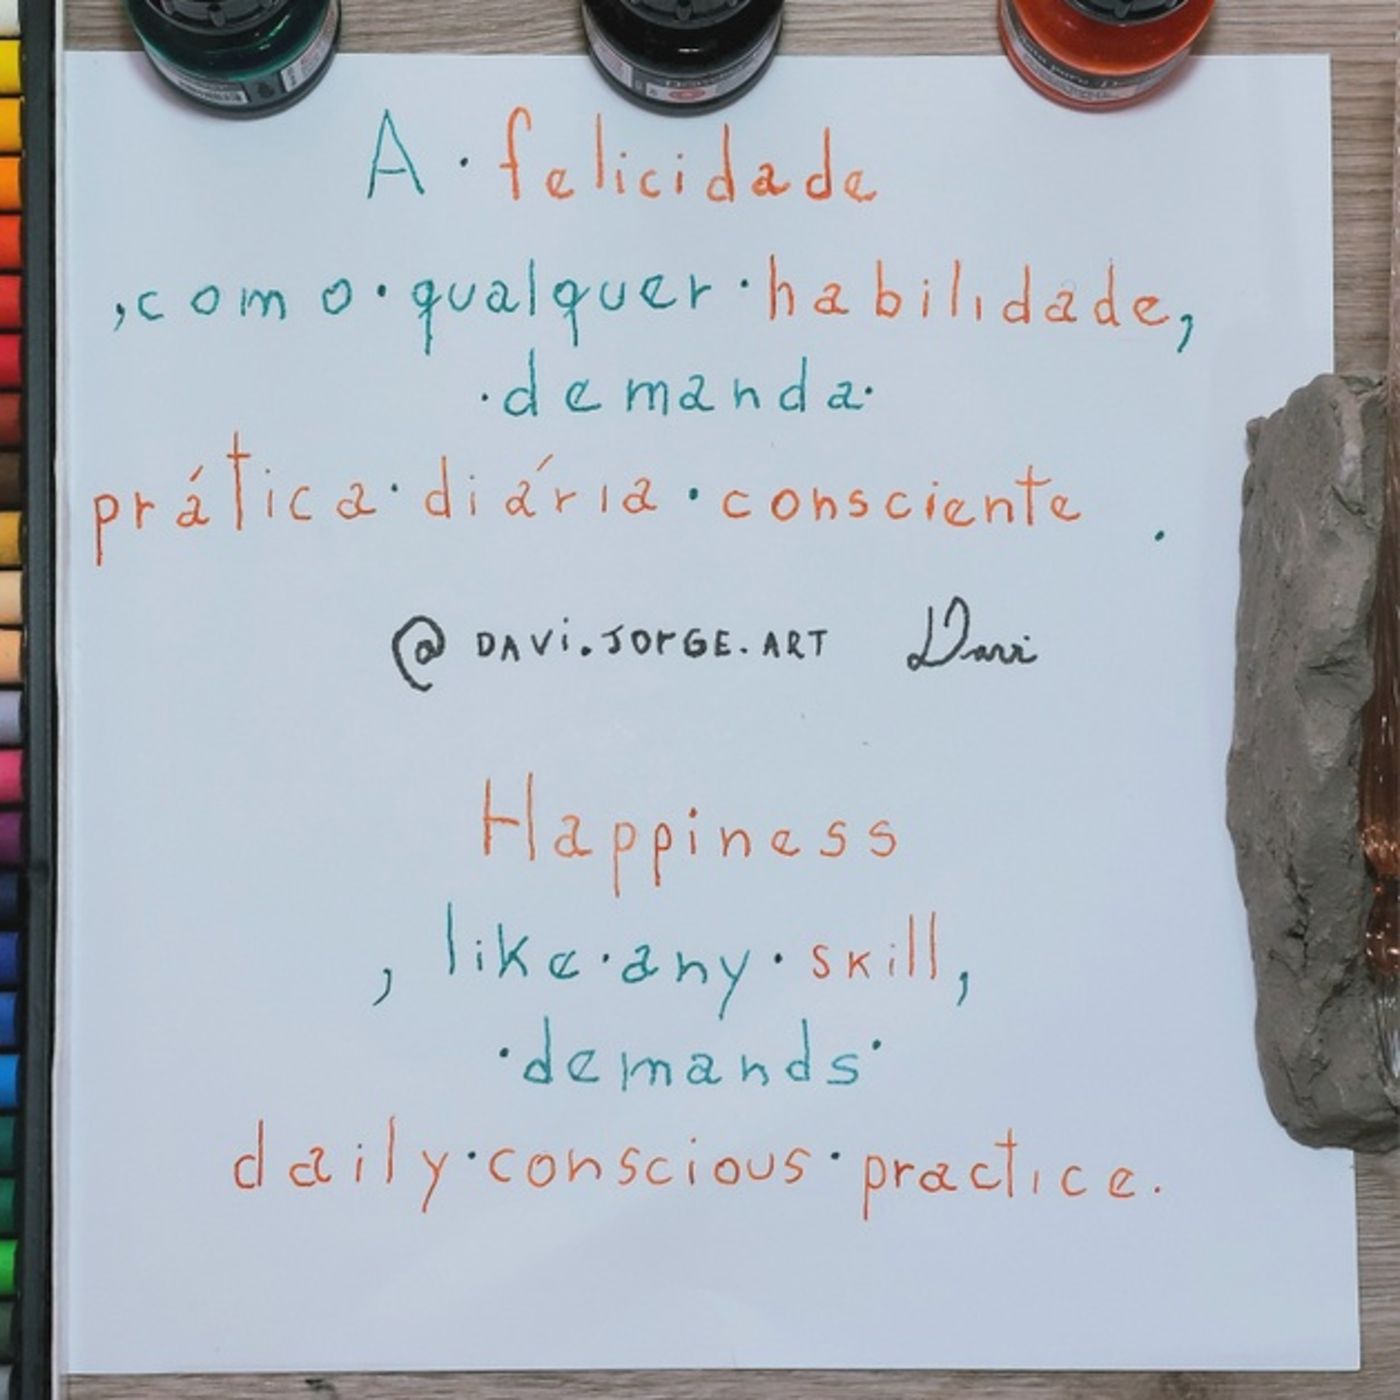 A · felicidade
, como · qualquer · habilidade,
· demanda ·
prática · diária · consciente .
@DAVI.JORGE.ART Davi
Happiness
, like · any · skill,
· demands ·
daily · conscious · practice.